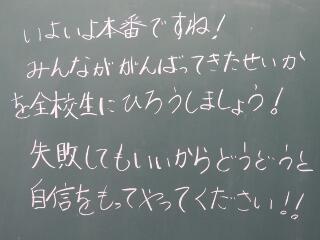 いよいよ本番ですね!
みんながががんばってきたせいか
を全校生にひろうしましょう!
失敗してもいいからどうどうと
自信をもってやってください!!